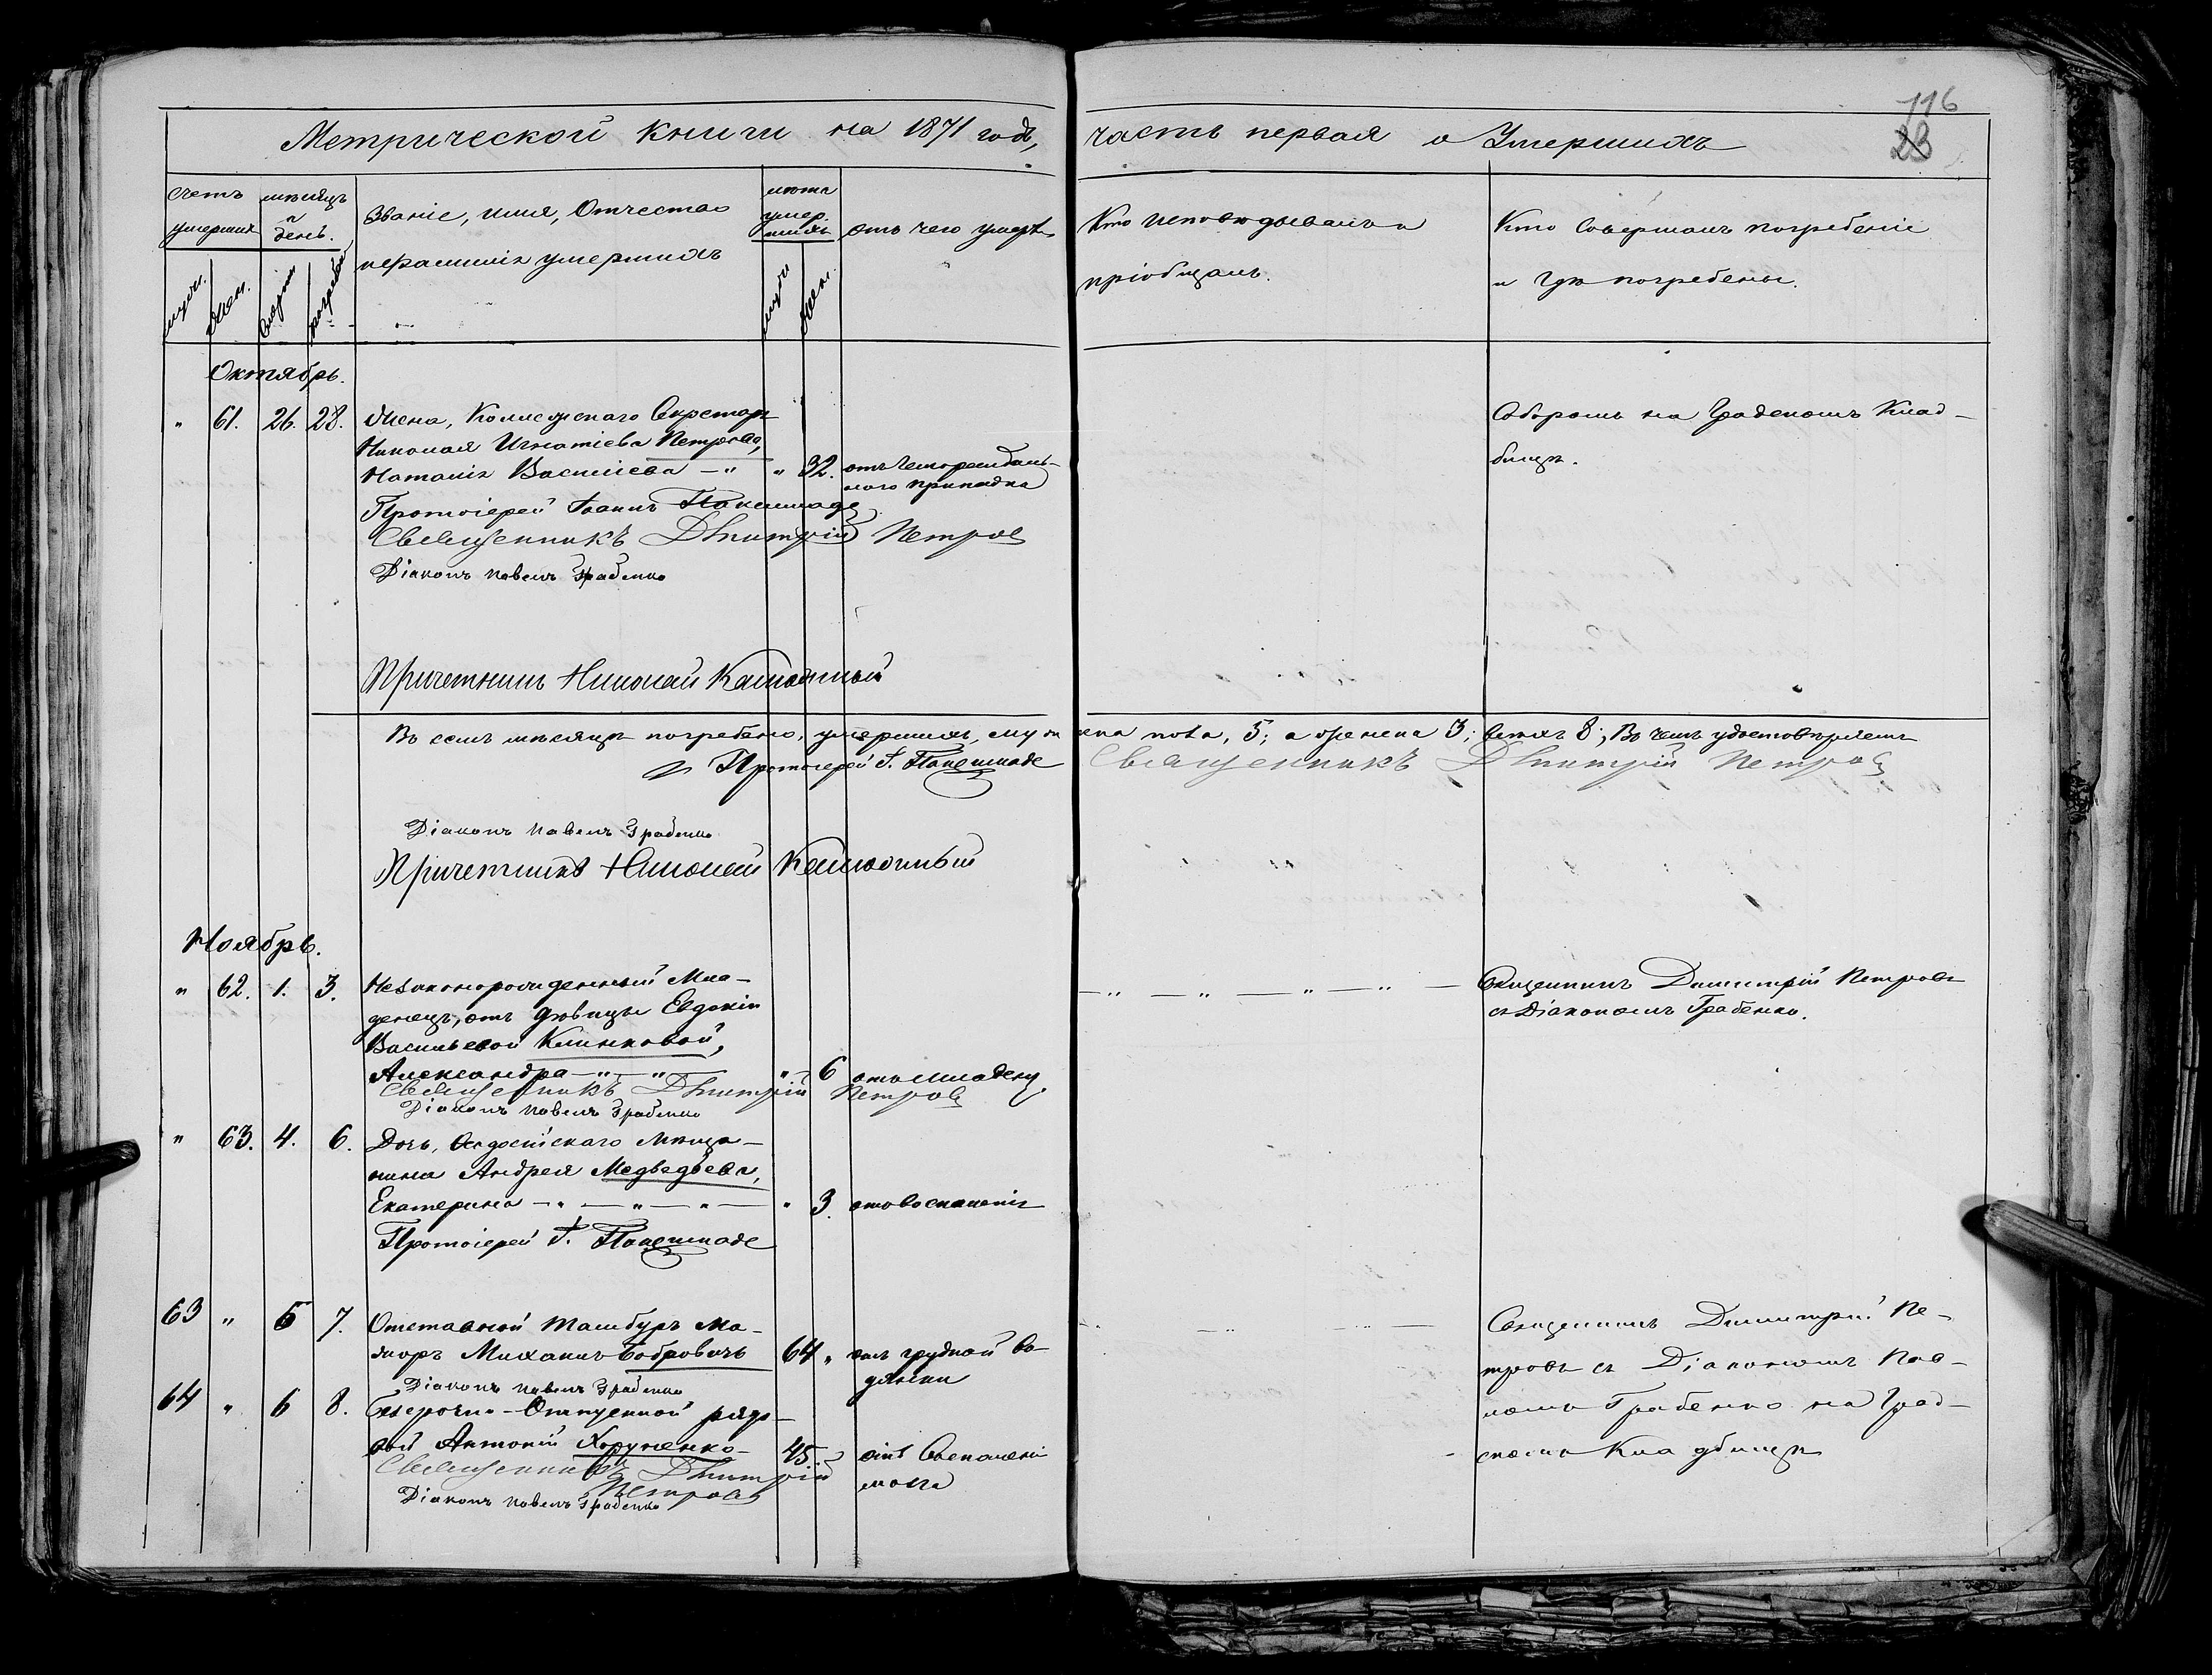 116
28
Метрической книги на 1871 годъ, часть первая о Умершихъ
счетъ умершихъ
мѣсяцъ и день.
Званіе, имя, Отчество
и фамилія умершихъ
лѣта умершихъ
отъ чего умеръ
Кто исповѣдывалъ и
пріобщалъ.
Кто Совершалъ погребеніе
и Гдѣ погребены.
муж.
жен.
смерти
погребен.
муж.
жен.
Октябрь.
" 61. 26. 28. Жена, Коллежскаго Секретаря
Николая Игнатіева Петрова,
Наталія Василіева — " " 32. отъ Гемороидаль-
наго припадка
Соборомъ на Градскомъ Клад-
бищѣ.
Протоіерей Іоаннъ
Священникъ Дмитрій Петровъ
Діаконъ Павелъ Грабенко
Причетникъ Николай
Въ семъ мѣсяцѣ погребено, умершихъ, мужеска пола, 5; а женска 3; всѣхъ 8; Въ чемъ удостовѣряемъ
Протоіерей І. Священникъ Дмитрій Петровъ
Діаконъ Павелъ Грабенко
Причетникъ Николай
Ноябрь.
" 62. 1. 3. Незаконорожденный Мла-
денецъ, отъ дѣвицы Евдокіи
Васильевой Клинковой,
Александра — " — " — " 6 отъ младенч.
— " — " — " — " —
Священникъ Димитрій Петровъ
съ Діакономъ Грабенко.
Священникъ Дмитрій Петровъ
Діаконъ Павелъ Грабенко
" 63. 4. 6. Дочь, Ѳеодосійскаго Мѣща-
нина Андрея Медведѣева,
Екатерина — " — " — " — " 3. отъ воспаленія
Протоіерей І.
63 " 5 7. Отставной Тамбуръ Ма-
жоръ Михаилъ Бобровичъ 64 " отъ грудной во-
дянки
Священникъ Димитрій Пе-
тровъ съ Діакономъ Пав-
ломъ Грабенко на Град-
скомъ Кладбищѣ
Діаконъ Павелъ Грабенко
64 " 6 8. Безсрочно-Отпускной рядо-
вой Антоній Хоруженко — 45 " отъ Воспаленія
мозга
Священникъ Дмитрій
Петровъ
Діаконъ Павелъ Грабенко